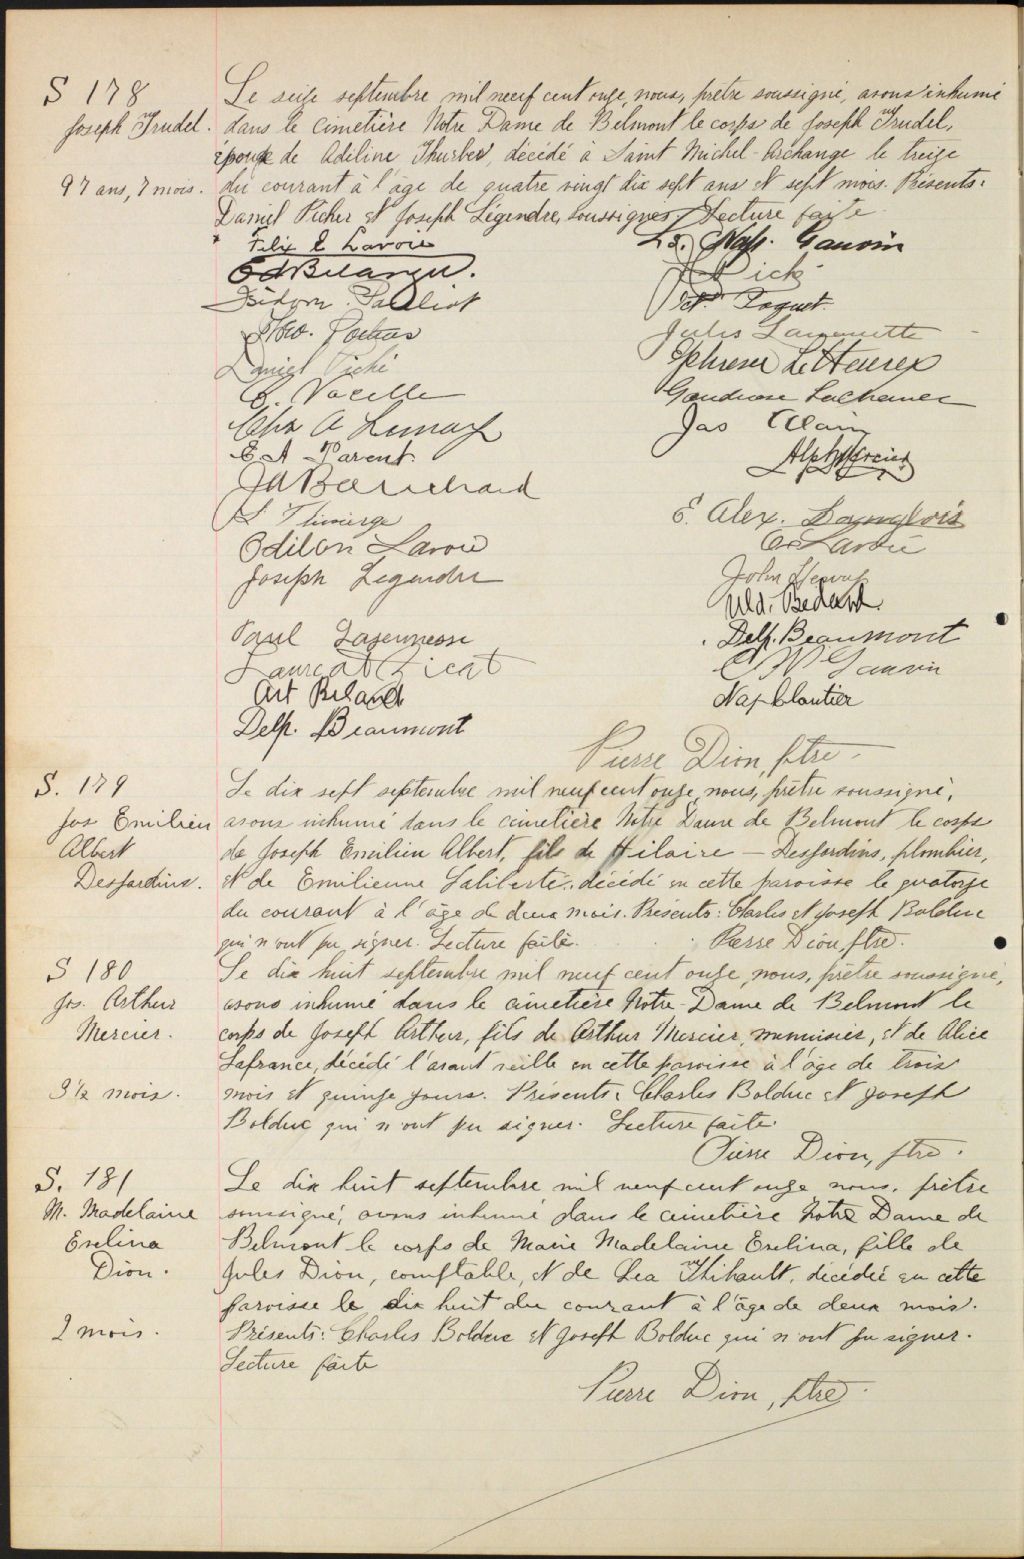 S 178
Joseph Trudel.
97 ans, 7 mois.
Le seize septembre mil neuf cent onze, nous, prêtre soussigné, avons inhumé
dans le cimetière Notre Dame de Belmont le corps de Joseph Trudel,
époux de Adeline Thurber, décédé à Saint Michel-Archange le treize
du courant à l'âge de quatre vingt dix sept ans et sept mois. Présents:
Daniel Picher et Joseph Légendre, soussignés. Lecture faite.
Felix E Lavoie
Nap. Gauvin
Ed Belanger.
Piché
Isidore
Paquet.
Jules Lamontagne
Daniel Piché
Ephrem LeHeurex
Lachance
Chs A Lemay
Jas Alain
E. A Parent.
Alph Mercier
J A Bouchard
E. Alex. Langlois
Odilon Lavoie
Lavoie
Joseph Legendre
John
Uld. Bedard.
Paul Lajeunesse
Delp. Beaumont
Laureat Picat
Gauvin
Art Beland
Nap Cloutier
Delp. Beaumont
Pierre Dion, ptre.
S. 179
Jos Emilien
Albert
Desjardins.
Le dix sept septembre mil neuf cent onze, nous, prêtre soussigné,
avons inhumé dans le cimetière Notre Dame de Belmont le corps
de Joseph Emilien Albert, fils de Hilaire - Desjardins, plombier,
et de Emilienne Laliberté, décédé en cette paroisse le quatorze
du courant à l'âge de deux mois. Présents: Charles et Joseph Bolduc
qui n'ont pu signer. Lecture faite.
Pierre Dion, ptre.
S 180
Jos. Arthur
Mercier.
3½ mois.
Le dix huit septembre mil neuf cent onze, nous, prêtre soussigné,
avons inhumé dans le cimetière Notre-Dame de Belmont le
corps de Joseph Arthur, fils de Arthur Mercier, menuisier, et de Alice
Lafrance, décédé l'avant veille en cette paroisse à l'âge de trois
mois et quinze jours. Présents: Charles Bolduc et Joseph
Bolduc qui n'ont pu signer. Lecture faite.
Pierre Dion, ptre.
S. 181
M. Madelaine
Evelina
Dion.
2 mois.
Le dix huit septembre mil neuf cent onze nous, prêtre
soussigné, avons inhumé dans le cimetière Notre Dame de
Belmont le corps de Marie Madelaine Evelina, fille de
Jules Dion, comptable, et de Lea Thibault, décédée en cette
paroisse le dix huit du courant à l'âge de deux mois.
Présents: Charles Bolduc et Joseph Bolduc qui n'ont pu signer.
Lecture faite
Pierre Dion, ptre.